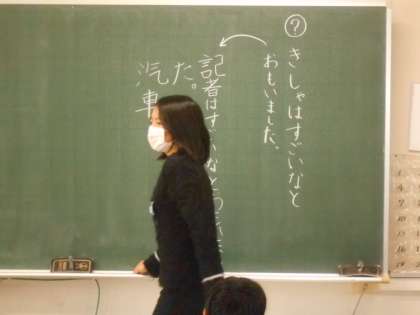 ?
きしゃはすごいなと
おもいました。
記者はすごいなと
た。
汽車